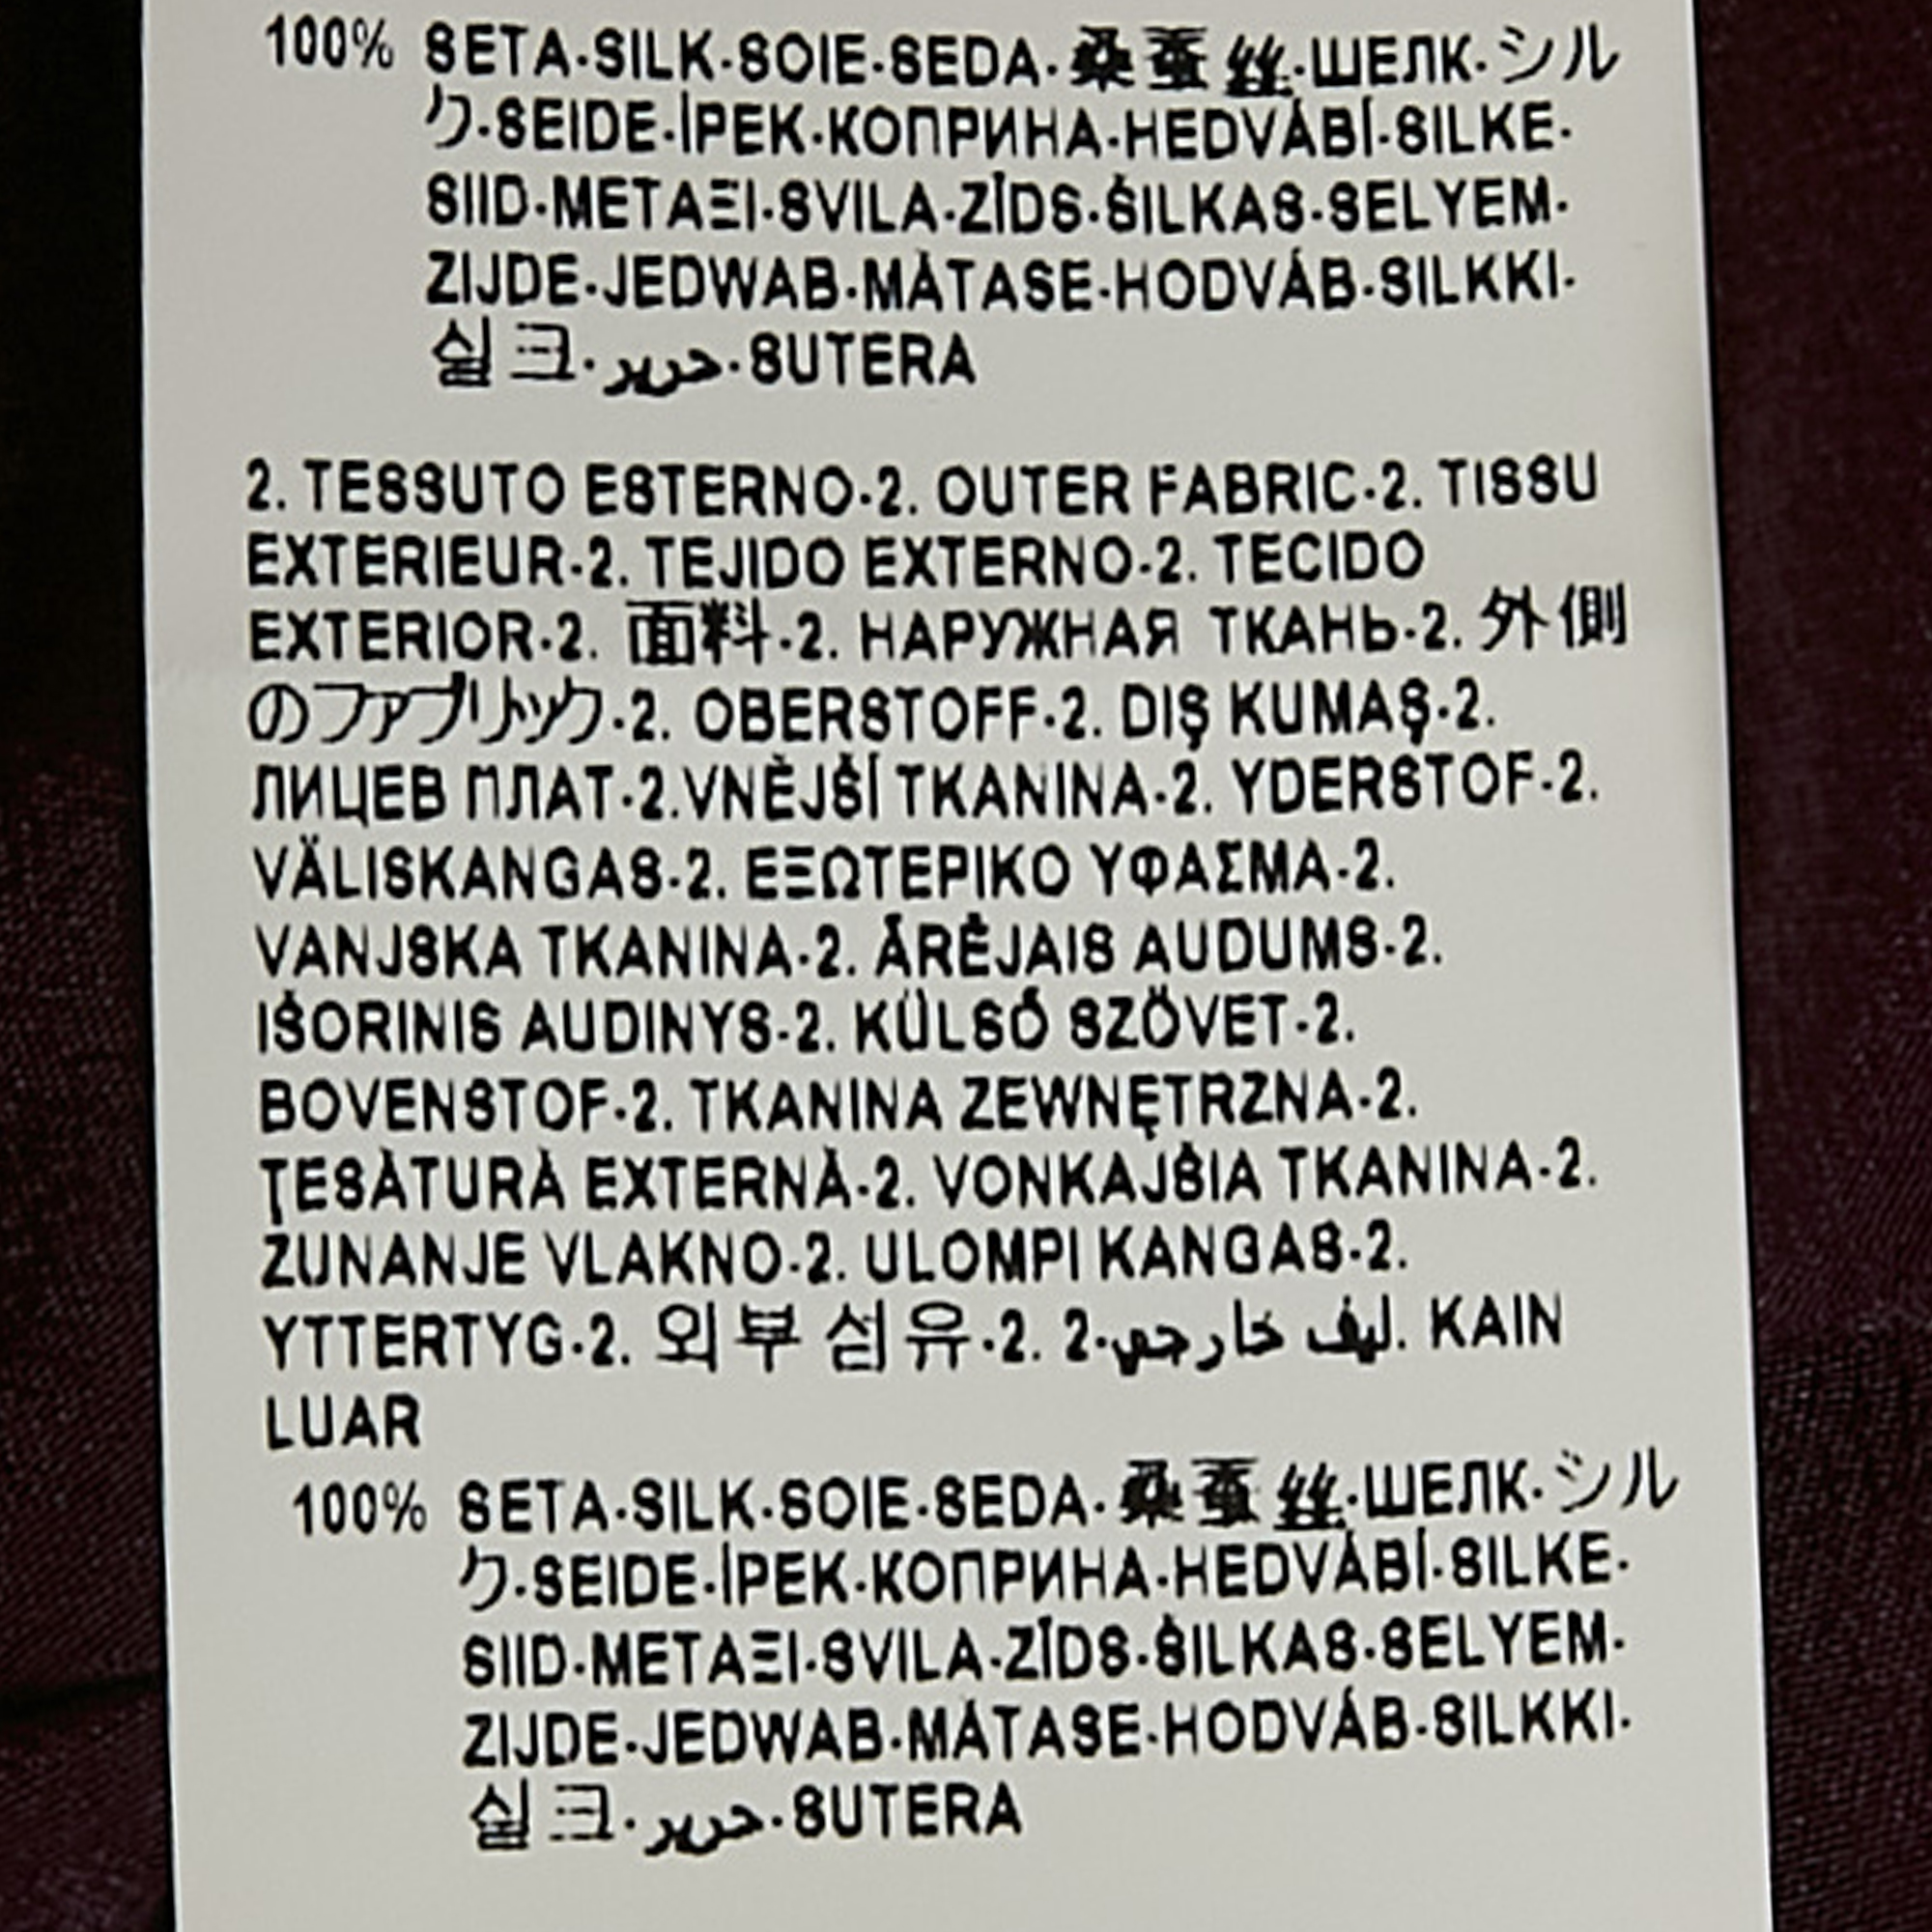 100% SETA·SILK·SOIE·SEDA·桑蚕丝·ШЕЛК·シル
ク·SEIDE·İPEK·КОПРИНА·HEDVÁBÍ·SILKE·
SIID·ΜΕΤΑΞΙ·SVILA·ZĪDS·ŠILKAS·SELYEM·
ZIJDE·JEDWAB·MĂTASE·HODVÁB·SILKKI·
실크·حرير·SUTERA
2. TESSUTO ESTERNO·2. OUTER FABRIC·2. TISSU
EXTERIEUR·2. TEJIDO EXTERNO·2. TECIDO
EXTERIOR·2. 面料·2. НАРУЖНАЯ ТКАНЬ·2. 外側
のファブリック·2. OBERSTOFF·2. DIŞ KUMAŞ·2.
ЛИЦЕВ ПЛАТ·2.VNĚJŠÍ TKANINA·2. YDERSTOF·2.
VÄLISKANGAS·2. ΕΞΩΤΕΡΙΚΟ ΥΦΑΣΜΑ·2.
VANJSKA TKANINA·2. ĀRĒJAIS AUDUMS·2.
IŠORINIS AUDINYS·2. KÜLSŐ SZÖVET·2.
BOVENSTOF·2. TKANINA ZEWNĘTRZNA·2.
ŢESĂTURĂ EXTERNĂ·2. VONKAJŠIA TKANINA·2.
ZUNANJE VLAKNO·2. ULOMPI KANGAS·2.
YTTERTYG·2. 외부 섬유·2. ليف خارجي·2. KAIN
LUAR
100% SETA·SILK·SOIE·SEDA·桑蚕丝·ШЕЛК·シル
ク·SEIDE·İPEK·КОПРИНА·HEDVÁBÍ·SILKE·
SIID·ΜΕΤΑΞΙ·SVILA·ZĪDS·ŠILKAS·SELYEM·
ZIJDE·JEDWAB·MĂTASE·HODVÁB·SILKKI·
실크·حرير·SUTERA